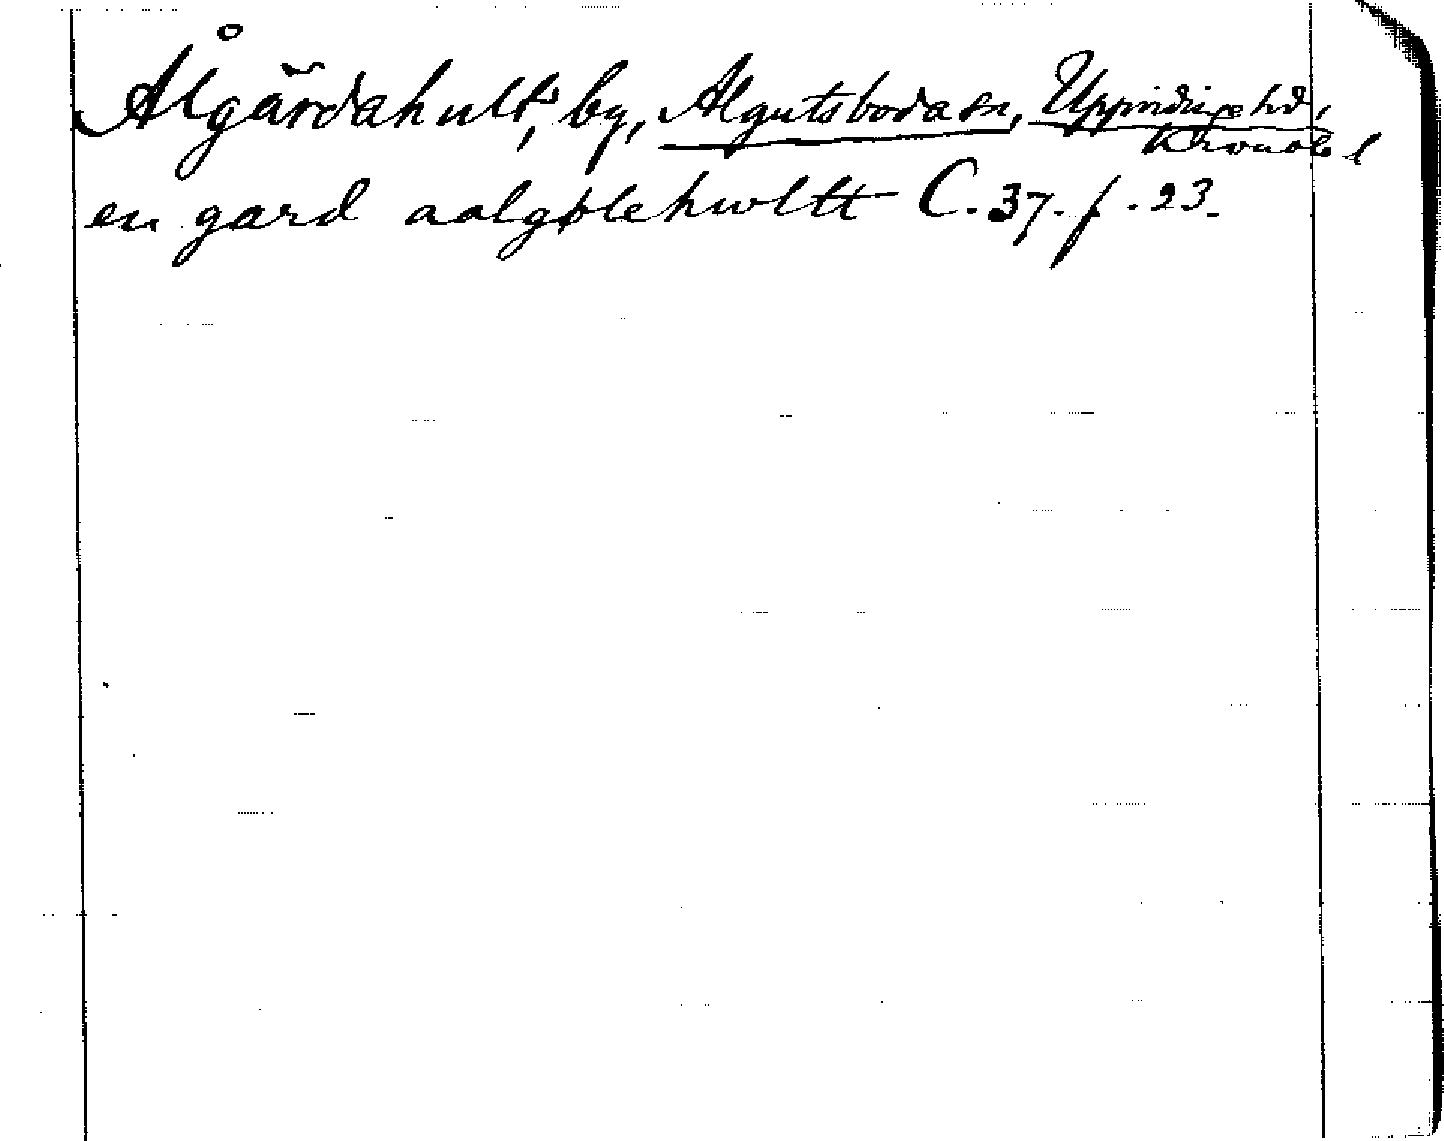 Ålgärdahult, by, Algutsboda sn, Uppvidinge hd,
Kronob l
en gard aalgølehwltt C. 37. f. 23.